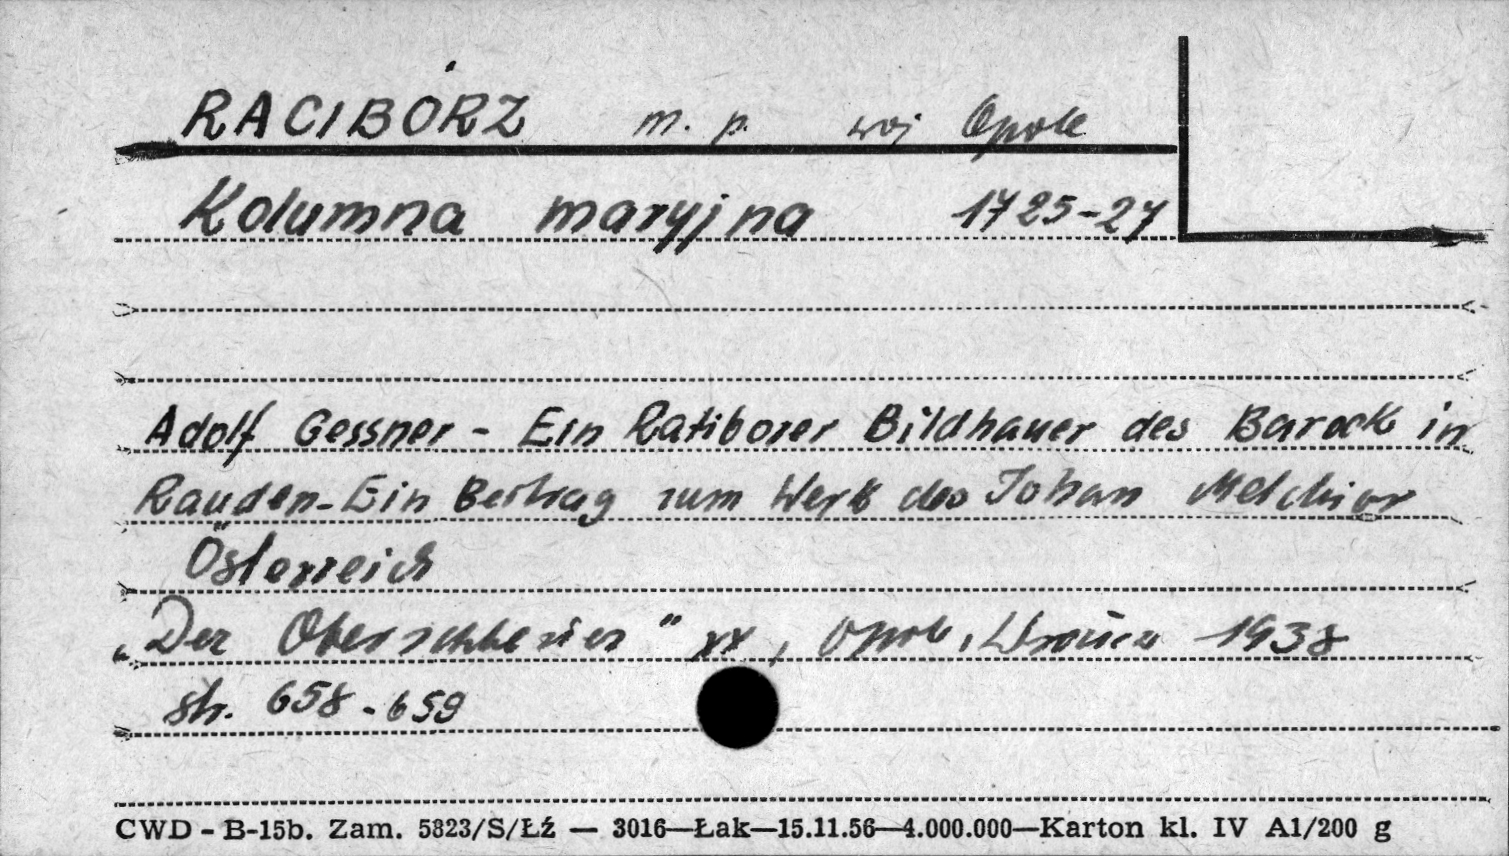 RACIBÓRZ m. p. woj Opole
Kolumna maryjna 1725-27
Adolf Gessner - Ein Ratiborer Bildhauer des Barock in
Rauden - Ein Beitrag zum Werk des Johan Melchior
Österreich
"Der Oberschlesier" XX, Opole, 1938
str. 658-659
CWD - B-15b. Zam. 5823/S/Łź — 3016—Łak—15.11.56—4.000.000—Karton kl. IV A1/200 g